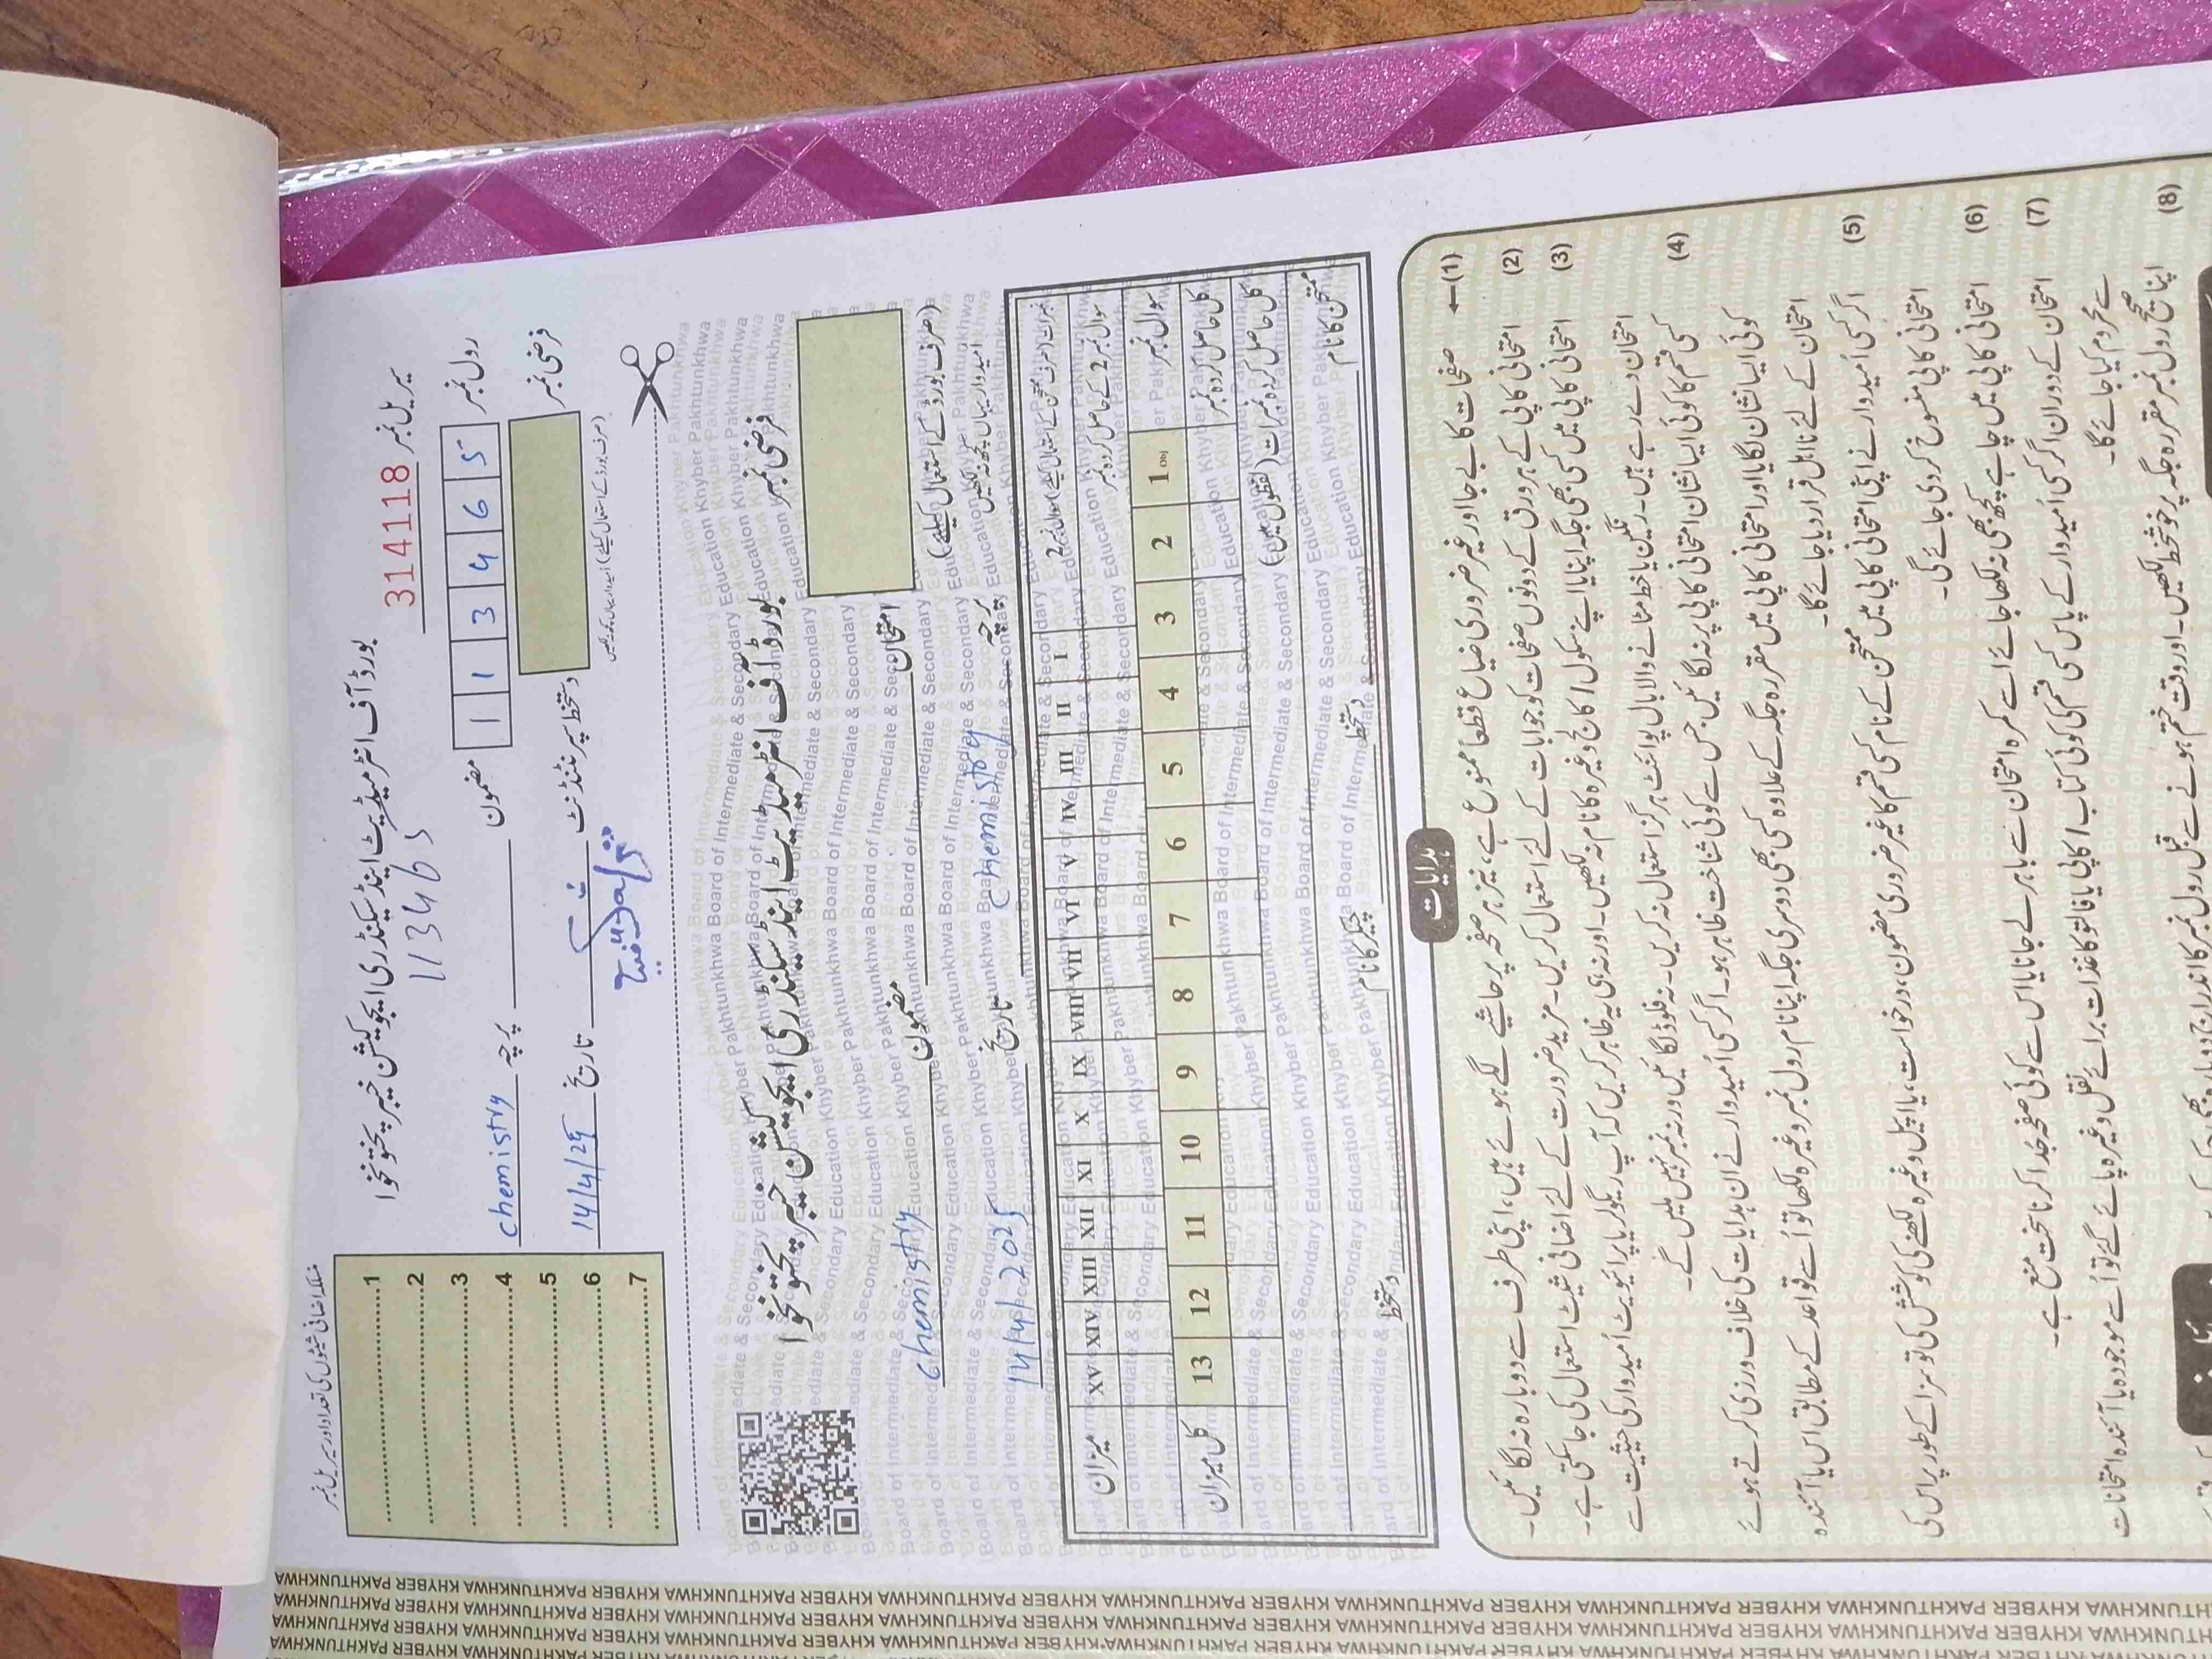 منسلکہ اضافی شیٹوں کی تعداد اور سیریل نمبر
1
2
3
4
5
6
7
بورڈ آف انٹرمیڈیٹ اینڈ سیکنڈری ایجوکیشن خیبر پختونخوا
سیریل نمبر 314118
113465
رول نمبر 1 1 3 4 6 5
مضمون پرچہ chemistry
فرضی نمبر
دستخط سپرنٹنڈنٹ تاریخ 14/4/25
(صرف بورڈ کے استعمال کیلئے) امیدوار یہاں کچھ نہ لکھیں
بورڈ آف انٹرمیڈیٹ اینڈ سیکنڈری ایجوکیشن خیبر پختونخوا
فرضی نمبر
امتحان مضمون chemistry
(صرف بورڈ کے استعمال کیلئے)
امیدوار یہاں کچھ نہ لکھیں
پرچہ chemistry تاریخ 14/4/2025
I II III IV V VI VII VIII IX X XI XII XIII XIV XV میزان
سوال نمبر 2 کے حاصل کردہ نمبر
سوال نمبر 1 Obj 2 3 4 5 6 7 8 9 10 11 12 13 کل میزان
کل حاصل کردہ نمبر
کل حاصل کردہ نمبرات (لفظوں میں)
ممتحن کا نام دستخط چیکر کا نام دستخط
ہدایات
(1) صفحات کا بے جا اور غیر ضروری ضیاع قطعاً ممنوع ہے، نیز ہر صفحہ پر حاشیے لگے ہوئے ہیں، اپنی طرف سے دوبارہ نہ لگائیں۔
(2) امتحانی کاپی کے ہر ورق کے دونوں صفحات کو جوابات کے لئے استعمال کریں۔ مزید ضرورت کے لئے اضافی شیٹ استعمال کی جا سکتی ہے۔
(3) امتحانی کاپی میں کسی بھی جگہ اپنا یا اپنے سکول / کالج وغیرہ کا نام نہ لکھیں۔ اور نہ ہی یہ ظاہر کریں کہ آپ ریگولر یا پرائیویٹ اُمیدوار کی حیثیت سے
امتحان دے رہے ہیں۔ رنگین یا خط مٹانے والا بال پوائنٹ ہرگز استعمال نہ کریں۔ نہ فلوڈ لگائیں ورنہ نمبر نہیں ملیں گے۔
(4) کسی قسم کا کوئی ایسا نشان امتحانی کاپی پر نہ لگائیں جس سے کوئی شناخت ظاہر ہو۔ اگر کسی اُمیدوار نے ان ہدایات کی خلاف ورزی کرتے ہوئے
کوئی ایسا نشان لگایا اور امتحانی کاپی میں مقررہ جگہ کے علاوہ کسی بھی دوسری جگہ اپنا نام رول نمبر وغیرہ لکھا تو اُسے قواعد کے مطابق اس یا آئندہ
امتحان کے لئے نااہل قرار دیا جائے گا۔
(5) اگر کسی اُمیدوار نے اپنی امتحانی کاپی میں ممتحن کے نام کسی قسم کا غیر ضروری مضمون، درخواست، یا اپیل وغیرہ لکھنے کی کوشش کی تو سزا کے طور پر اس کی
امتحانی کاپی منسوخ کر دی جائے گی۔
(6) امتحانی کاپی میں چاہے کچھ بھی نہ لکھا جائے اسے کمرہ امتحان سے باہر لے جانا یا اس سے کوئی صفحہ جُدا کرنا سخت منع ہے۔
(7) امتحان کے دوران اگر کسی اُمیدوار کے پاس کسی قسم کی کوئی کتاب / کاپی یا فالتو کاغذات برائے نقل وغیرہ پائے گئے تو اُسے موجودہ یا آئندہ امتحانات
سے محروم کیا جائے گا۔
(8) اپنا صحیح رول نمبر مقررہ جگہ پر خوشخط لکھیں۔ اور وقت ختم ہونے سے قبل رول نمبر کا اندراج دوبارہ
KHYBER PAKHTUNKHWA KHYBER PAKHTUNKHWA KHYBER PAKHTUNKHWA